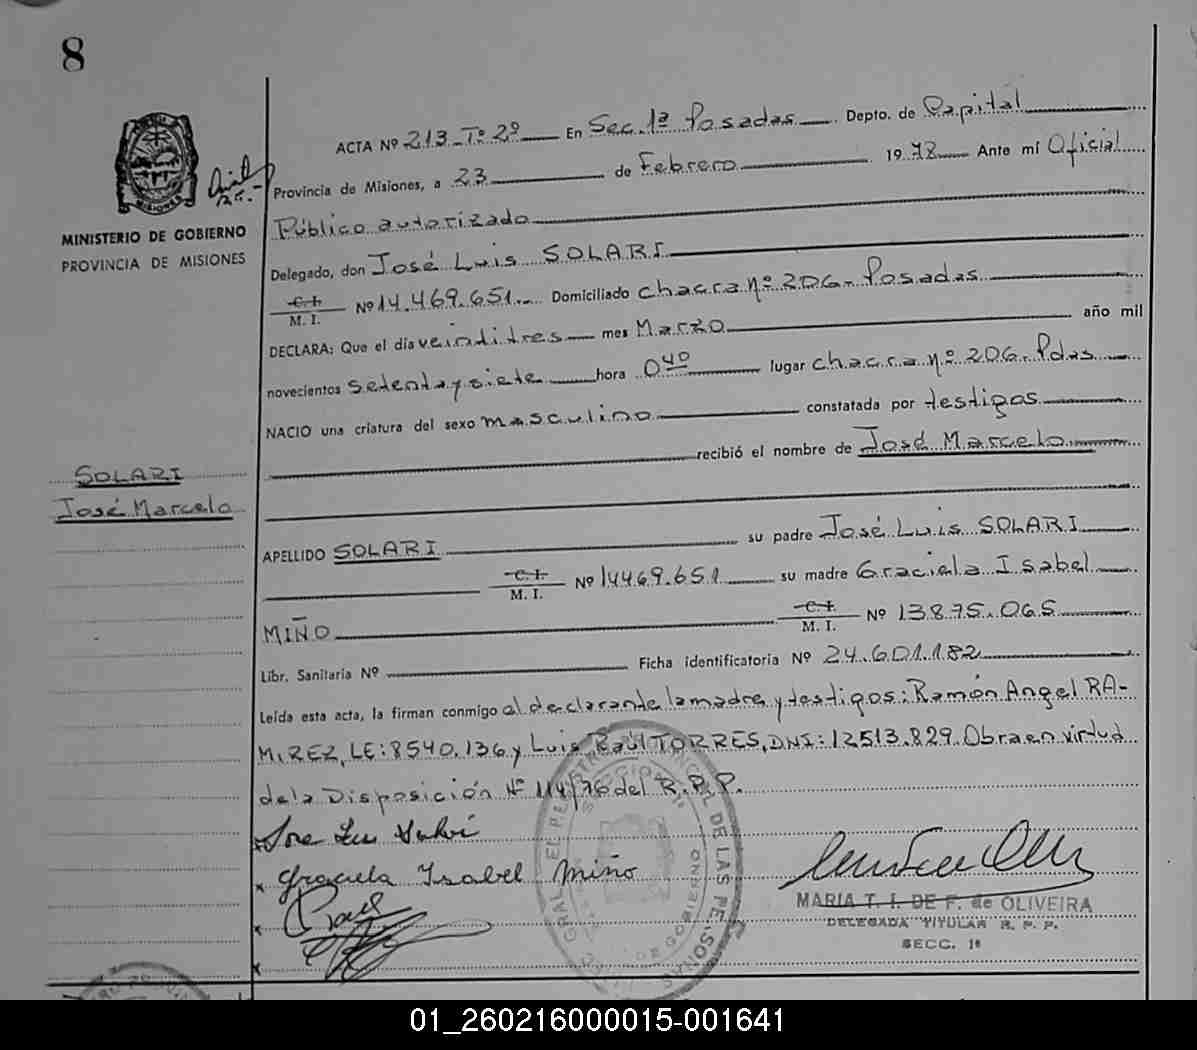 8
ACTA Nº 213_Tº 2º En Sec. 1ª Posadas Depto. de Capital
Provincia de Misiones, a 23 de Febrero 1978 Ante mí Oficial
Público autorizado
MINISTERIO DE GOBIERNO
PROVINCIA DE MISIONES
Delegado, don José Luis SOLARI
C.I.
M. I. Nº 14.469.651 Domiciliado chacra nº 206. Posadas
DECLARA: Que el día veintitres mes Marzo año mil
novecientos setenta y siete hora 0 40 lugar chacra nº 206. Pdas
NACIO una criatura del sexo masculino constatada por testigos
recibió el nombre de José Marcelo
SOLARI
José Marcelo
APELLIDO SOLARI su padre José Luis SOLARI
C.I.
M. I. Nº 14469.651 su madre Graciela Isabel
MIÑO C.I.
M. I. Nº 13875.065
Libr. Sanitaria Nº Ficha identificatoria Nº 24.601.182
Leída esta acta, la firman conmigo el declarante la madre y testigos: Ramón Angel RA-
MIREZ, LE: 8540.136 y Luis Raúl TORRES, DNI: 12513.829. Obra en virtud
de la Disposición Nº 114/76 del R.P.P.
Jose Luis Solari
Graciela Isabel Miño
MARIA T. I. DE F. de OLIVEIRA
DELEGADA TITULAR R. P. P.
SECC. 1ª
01_260216000015-001641